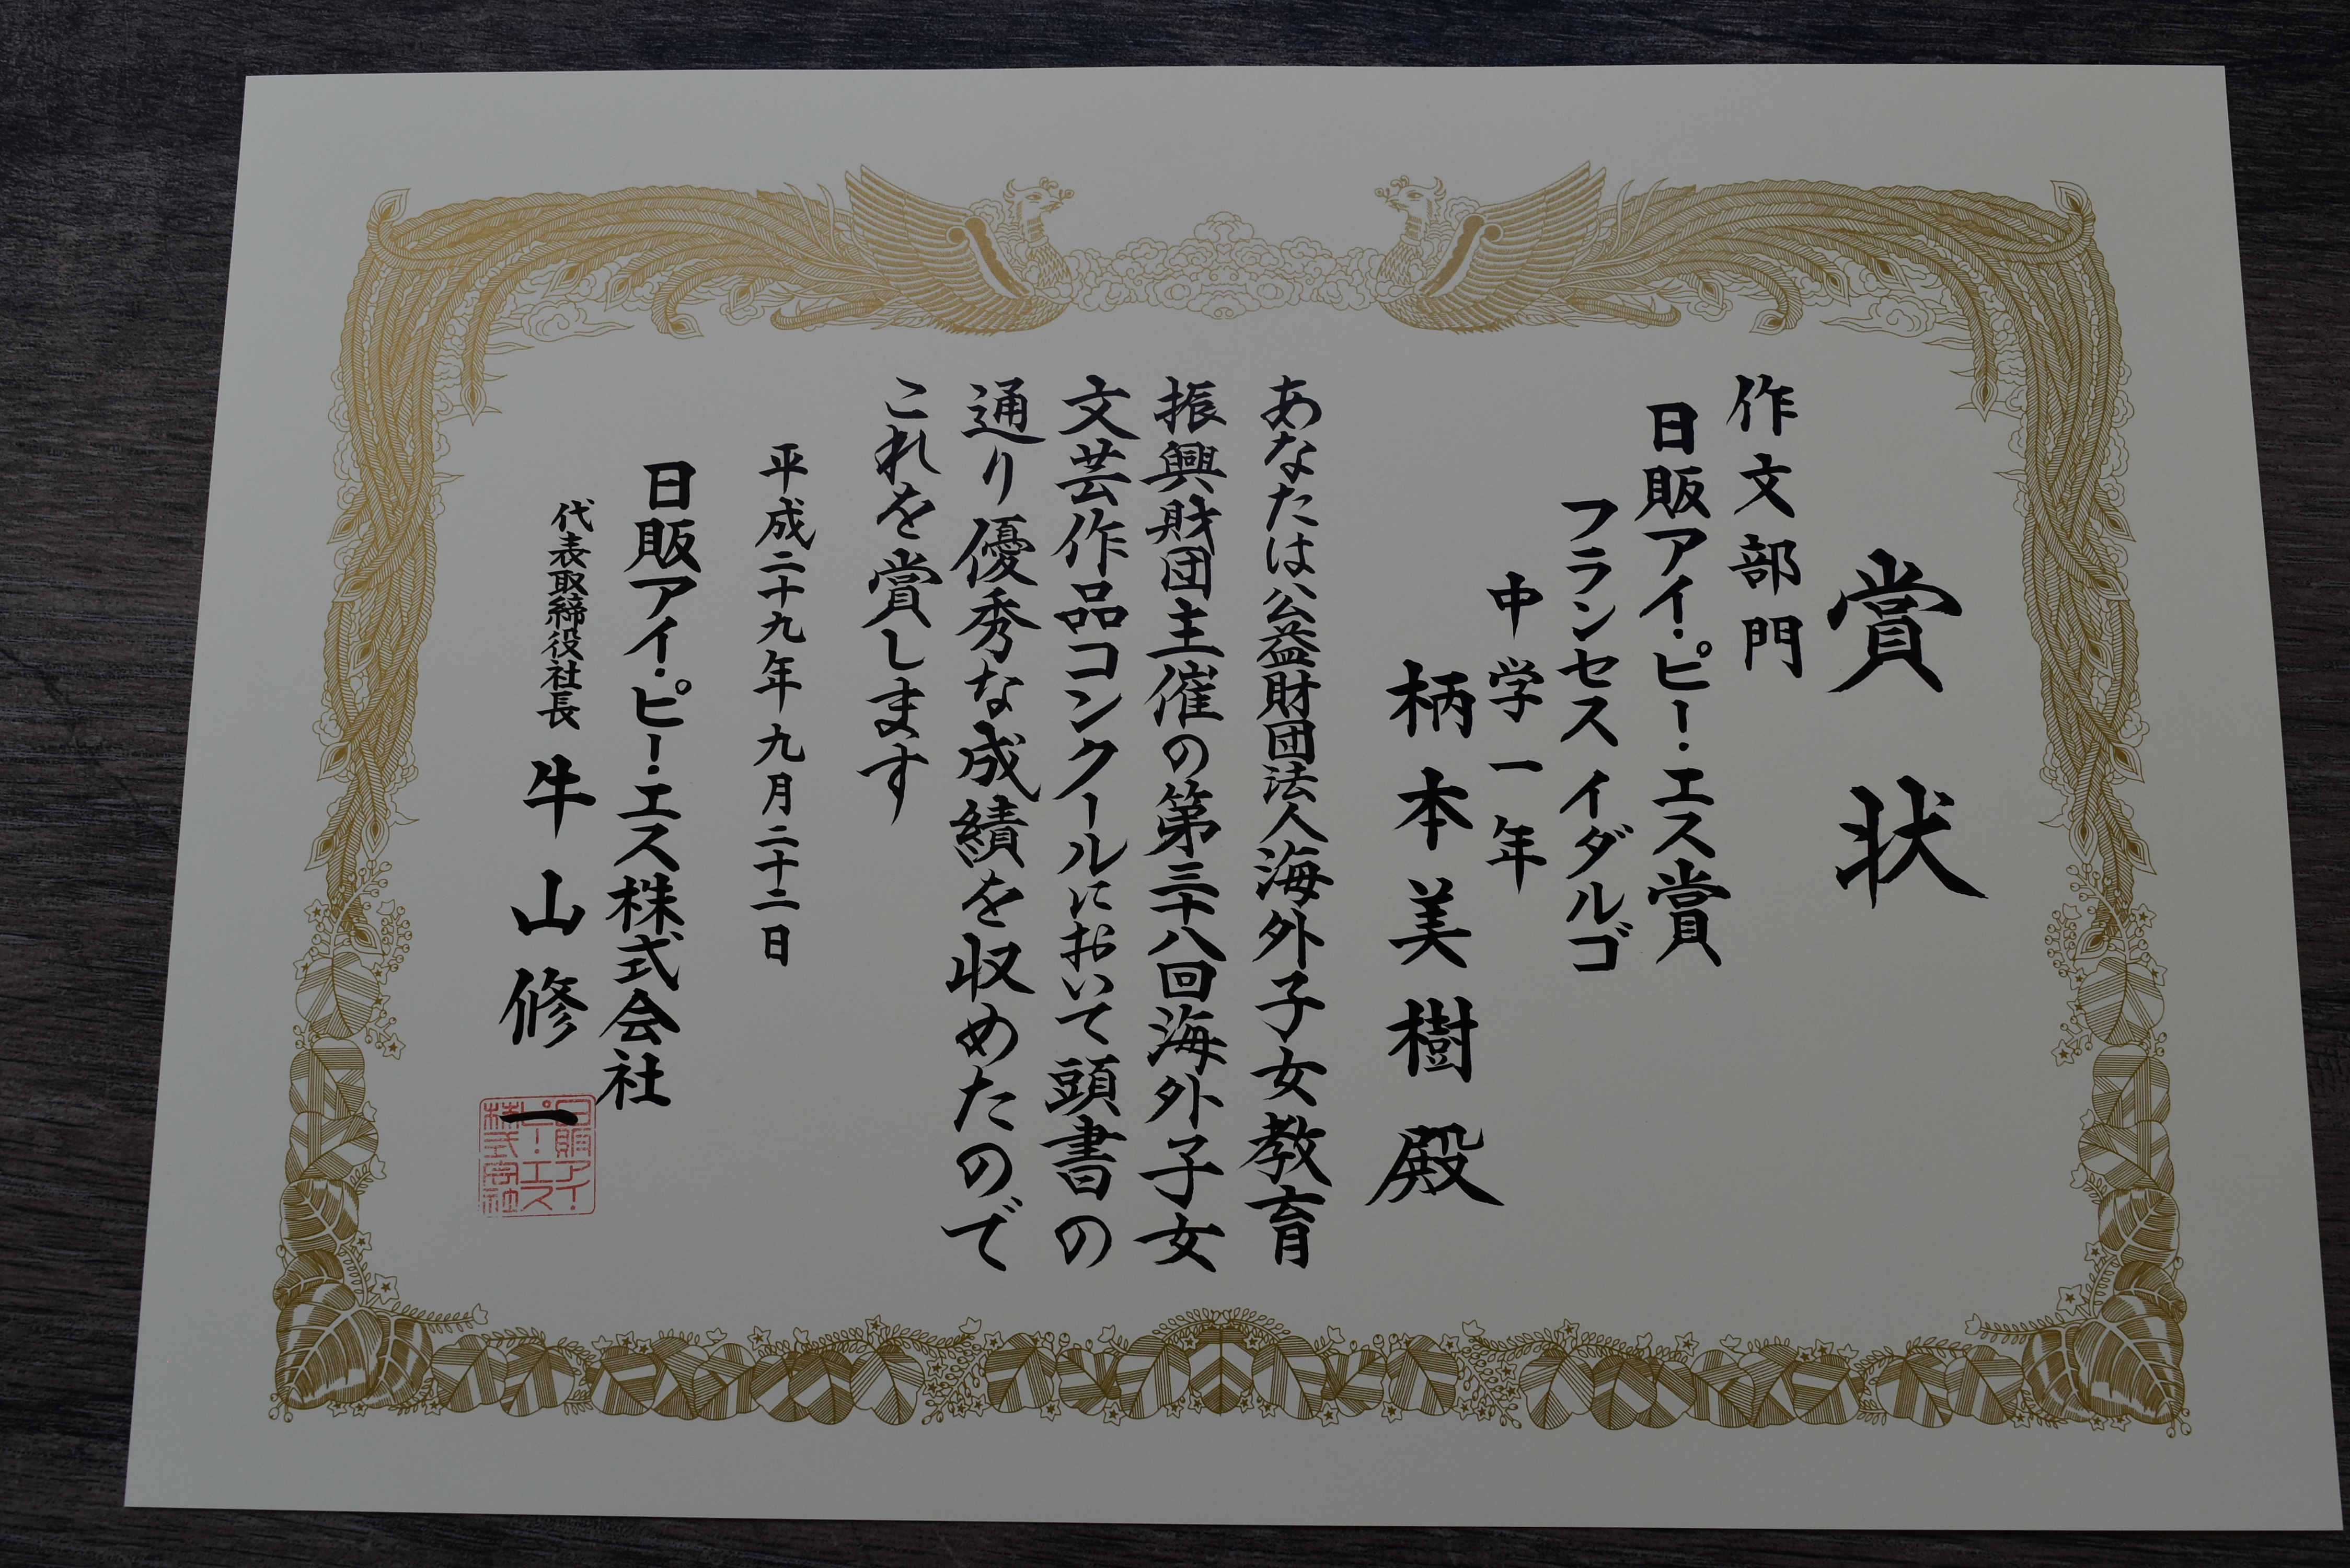 賞状
作文部門
日販アイ・ピー・エス賞
フランセス イダルゴ
中学一年
柄本美樹殿
あなたは公益財団法人海外子女教育
振興財団主催の第三十八回海外子女
文芸作品コンクールにおいて頭書の
通り優秀な成績を収めたので
これを賞します
平成二十九年九月二十二日
日販アイ・ピー・エス株式会社
代表取締役社長 牛山修一
日販アイ・
ピー・エス
株式会社